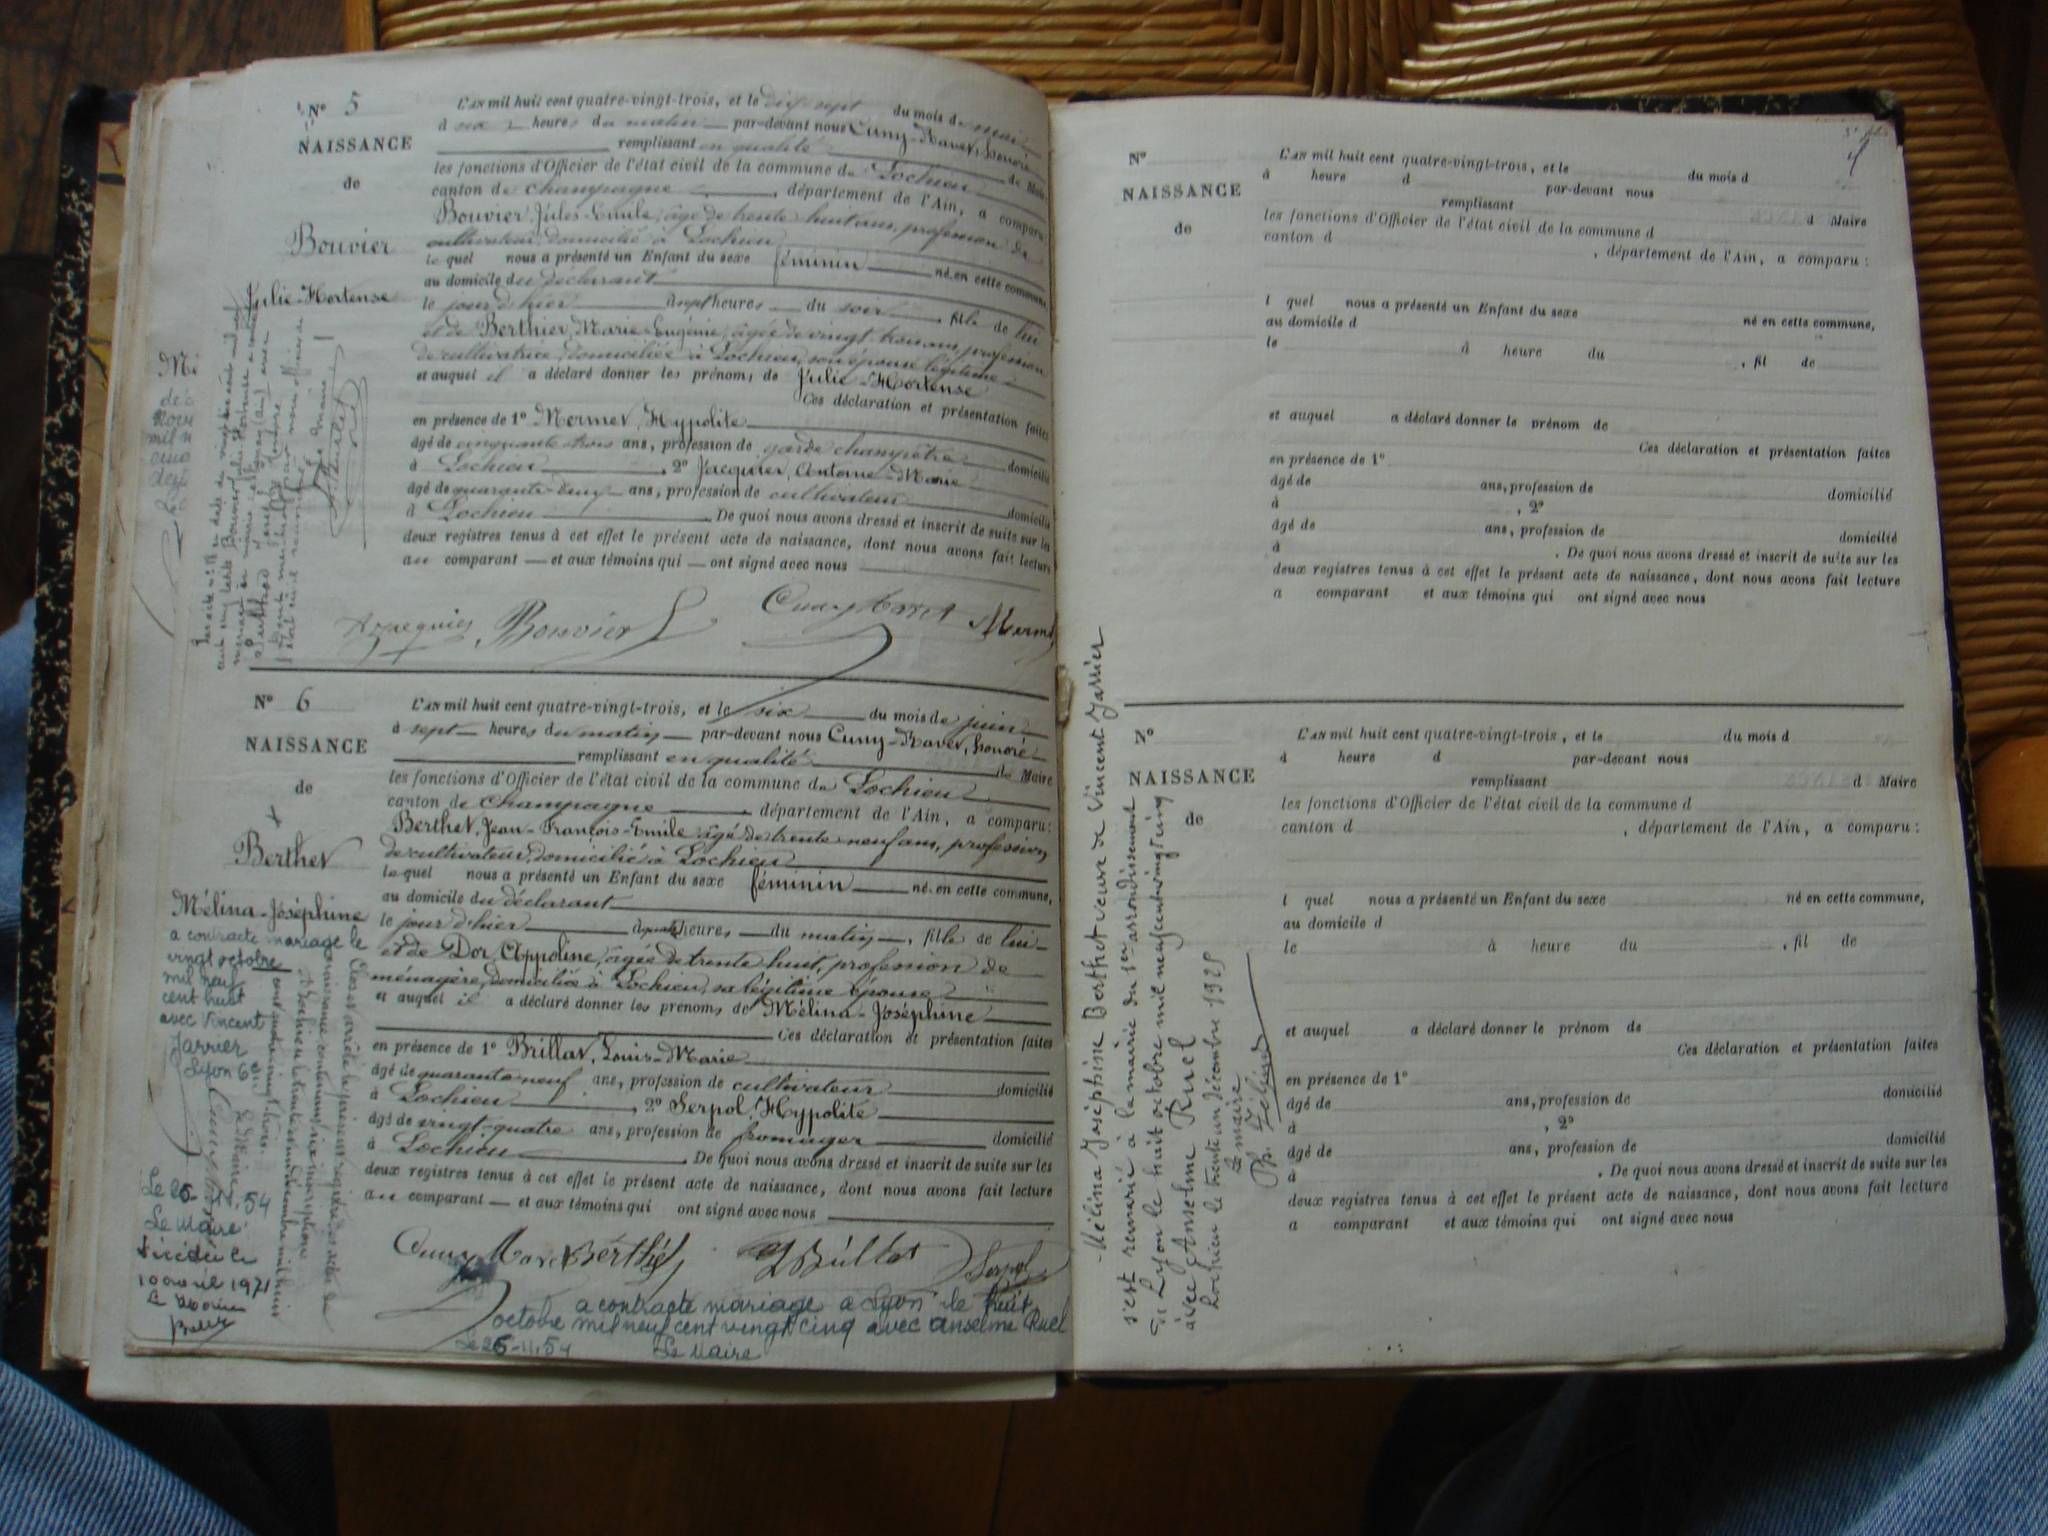 N° 5
NAISSANCE
de
Bouvier
Julie-Hortense
L'AN mil huit cent quatre-vingt-trois, et le dix sept du mois de mai
à six heures du matin par-devant nous Cuny-Ravet, Honoré
remplissant en qualité de Maire
les fonctions d'Officier de l'état civil de la commune de Lochieu
canton de champagne, département de l'Ain, a comparu:
Bouvier, Jules-Emile, âgé de trente huit ans, profession de
cultivateur, domicilié à Lochieu
le quel nous a présenté un Enfant du sexe féminin né en cette commune
au domicile du déclarant
le jour d'hier à sept heures du soir, fille de lui
et de Berthier, Marie-Eugénie, âgée de vingt trois ans, profession
de cultivatrice, domiciliée à Lochieu, son épouse légitime
et auquel il a déclaré donner les prénoms de Julie-Hortense
Ces déclaration et présentation faites
en présence de 1° Mermet, Hypolite
âgé de cinquante trois ans, profession de garde champêtre domicilié
à Lochieu, 2° Jacquier, Antoine-Marie
âgé de quarante-deux ans, profession de cultivateur domicilié
à Lochieu. De quoi nous avons dressé et inscrit de suite sur les
deux registres tenus à cet effet le présent acte de naissance, dont nous avons fait lecture
au comparant — et aux témoins qui — ont signé avec nous
Bouvier J Cuny Ravet Merm
N° 6
NAISSANCE
de
Berthet
Mélina-Joséphine
a contracté mariage le
vingt octobre
mil neuf
cent huit
avec Vincent
Jarrier
Lyon 6e
Le 26-11-54
Le Maire
Décédée le
10 avril 1971
Le Maire
L'AN mil huit cent quatre-vingt-trois, et le six du mois de juin
à sept heures du matin par-devant nous Cuny-Ravet, honoré
remplissant en qualité de Maire
les fonctions d'Officier de l'état civil de la commune de Lochieu
canton de champagne, département de l'Ain, a comparu:
Berthet, Jean-François-Emile âgé de trente neuf ans, profession
de cultivateur, domicilié à Lochieu
le quel nous a présenté un Enfant du sexe féminin né en cette commune,
au domicile du déclarant
le jour d'hier à heures du matin, fille de lui
et de Dor, Appoline, âgée de trente huit, profession de
ménagère, domiciliée à Lochieu, sa légitime épouse
et auquel il a déclaré donner les prénoms de Mélina-Joséphine
Ces déclaration et présentation faites
en présence de 1° Brillat, Louis-Marie
âgé de quarante neuf ans, profession de cultivateur domicilié
à Lochieu, 2° Serpol, Hypolite
âgé de vingt-quatre ans, profession de fromager domicilié
à Lochieu. De quoi nous avons dressé et inscrit de suite sur les
deux registres tenus à cet effet le présent acte de naissance, dont nous avons fait lecture
au comparant — et aux témoins qui ont signé avec nous
Cuny Ravet Berthet Brillat Serpol
a contracté mariage a Lyon le huit
octobre mil neuf cent vingt cinq avec anselme Ruel
Le 26-11-54 Le Maire
Clos et arrêté le présent registre des actes de
naissance contenant six inscriptions
à Lochieu le trente un décembre mil huit
cent quatre vingt trois.
Le Maire
N°
NAISSANCE
de
L'AN mil huit cent quatre-vingt-trois, et le du mois d
à heure d par-devant nous
remplissant d Maire
les fonctions d'Officier de l'état civil de la commune d
canton d , département de l'Ain, a comparu:
l quel nous a présenté un Enfant du sexe né en cette commune,
au domicile d
le à heure du , fil de
et auquel a déclaré donner le prénom de
Ces déclaration et présentation faites
en présence de 1°
âgé de ans, profession de domicilié
à , 2°
âgé de ans, profession de domicilié
à . De quoi nous avons dressé et inscrit de suite sur les
deux registres tenus à cet effet le présent acte de naissance, dont nous avons fait lecture
a comparant et aux témoins qui ont signé avec nous
Mélina Joséphine Berthet veuve de Vincent Jarrier
s'est remarié à la mairie du 1er arrondissement
de Lyon le huit octobre mil neuf cent vingt cinq
avec Anselme Ruel
Lochieu le trente un décembre 1925
Le maire
N°
NAISSANCE
de
L'AN mil huit cent quatre-vingt-trois, et le du mois d
à heure d par-devant nous
remplissant d Maire
les fonctions d'Officier de l'état civil de la commune d
canton d , département de l'Ain, a comparu:
l quel nous a présenté un Enfant du sexe né en cette commune,
au domicile d
le à heure du , fil de
et auquel a déclaré donner le prénom de
Ces déclaration et présentation faites
en présence de 1°
âgé de ans, profession de domicilié
à , 2°
âgé de ans, profession de domicilié
à . De quoi nous avons dressé et inscrit de suite sur les
deux registres tenus à cet effet le présent acte de naissance, dont nous avons fait lecture
a comparant et aux témoins qui ont signé avec nous